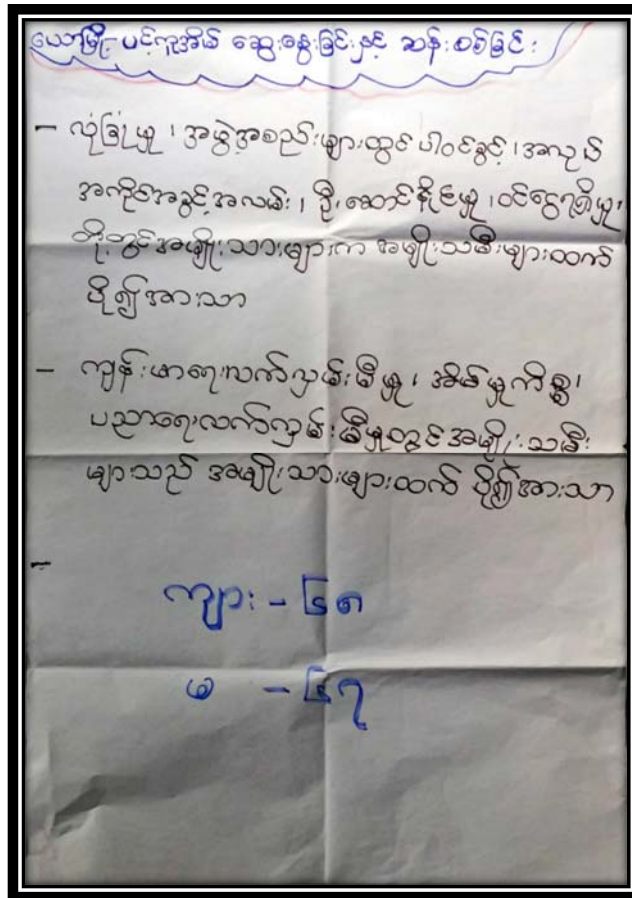 ယောမြို့ ပင့်ကူအိမ် ဆွေးနွေးခြင်းနှင့် ဆန်းစစ်ခြင်း
– လုံခြုံမှု ၊ အဖွဲ့အစည်းများတွင်ပါဝင်ခွင့် ၊ အလုပ်
အကိုင်အခွင့်အလမ်း ၊ ဦးဆောင်နိုင်မှု ၊ ဝင်ငွေရရှိမှု ၊
တို့တွင်အမျိုးသားများက အမျိုးသမီးများထက်
ပို၍အားသာ
– ကျန်းမာရေးလက်လှမ်းမီမှု ၊ အိမ်မှုကိစ္စ ၊
ပညာရေးလက်လှမ်းမီမှုတွင်အမျိုးသမီး
များသည် အမျိုးသားများထက် ပို၍အားသာ
–
ကျား – ၆၈
မ – ၆၇